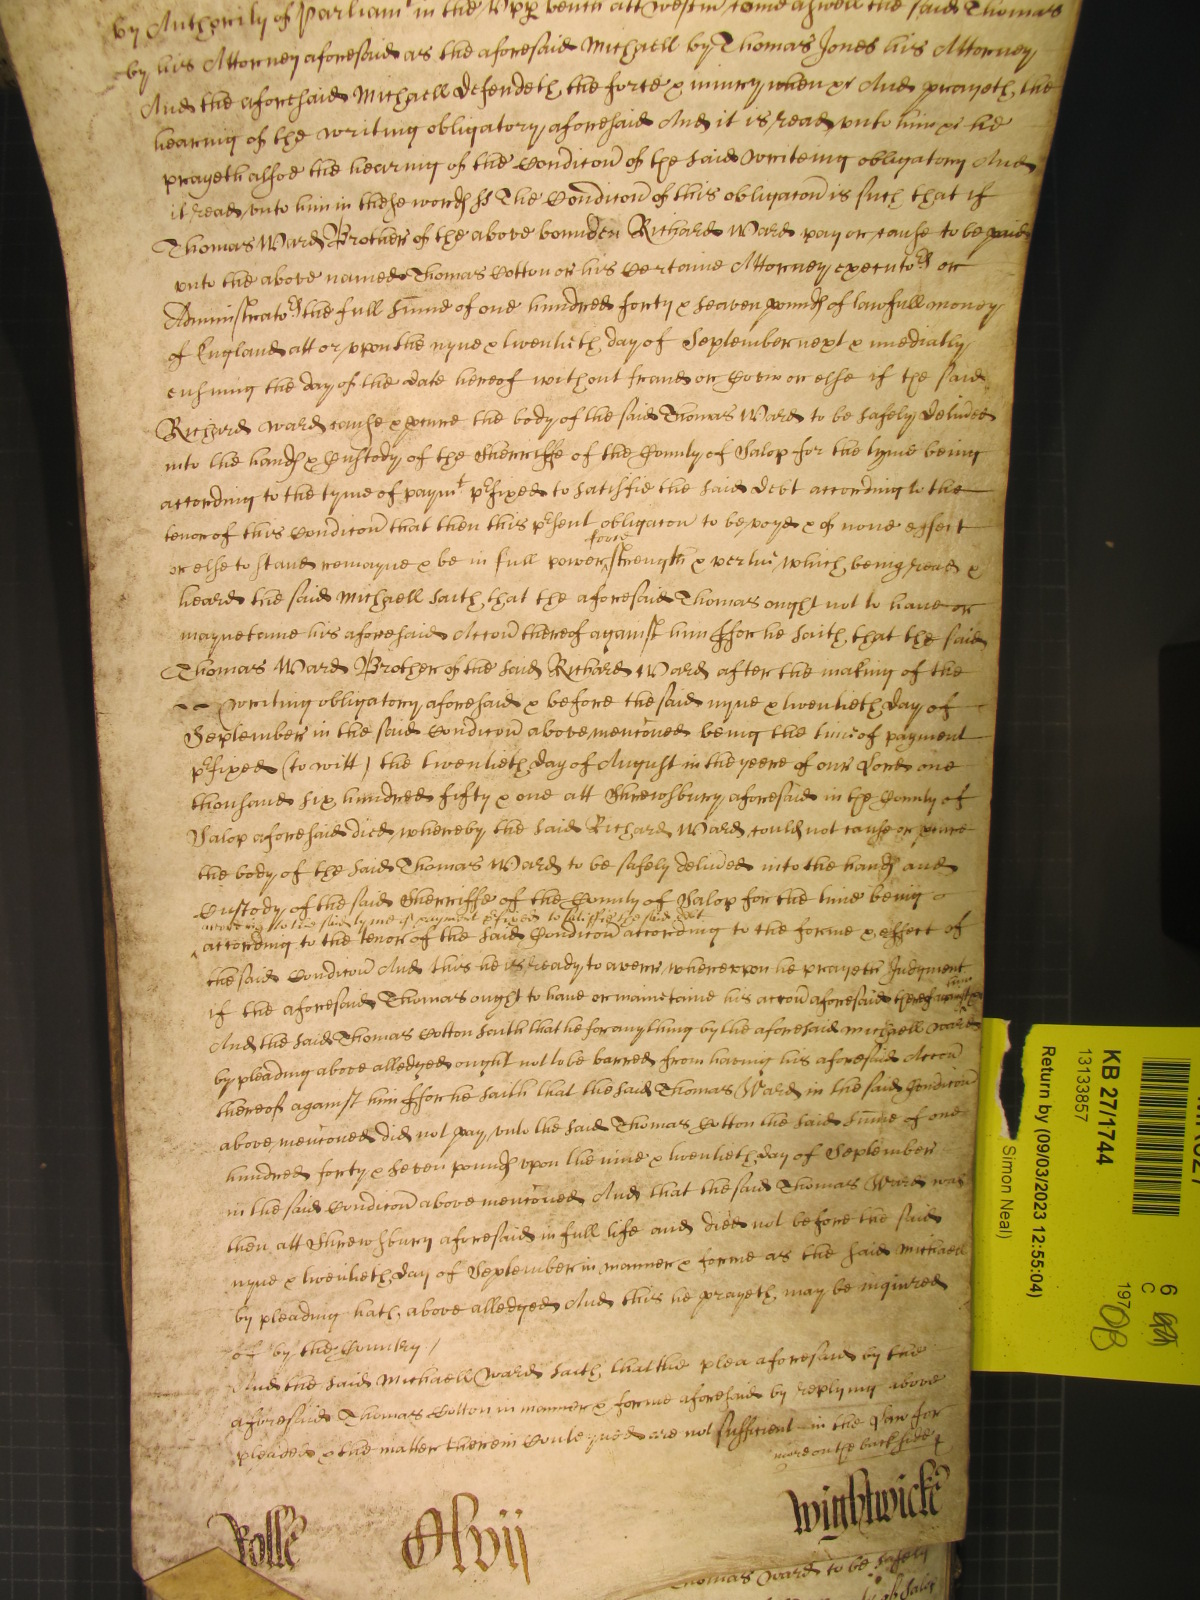 by Authority of Parliamt in the Upp bench att Westm come aswell the said Thomas
by his Attorney aforesaid as the aforesaid Michaell by Thomas Jones his Attorney
And the aforesaid Michaell defendeth the force & iniury when &c And prayeth the
hearing of the writing obligatory aforesaid And it is read unto him &c he
prayeth alsoe the hearing of the Condicon of the said writeing obligatory And
it read unto him in these words ss The Condicon of this obligacon is such that if
Thomas Ward Brother of the above bounden Richard Ward pay or cause to be paid
unto the above named Thomas Cotton or his Certaine Attorney executors or
Administrators the full Summe of one hundred forty & seaven pounds of lawfull money
of England att or upon the nyne & twentieth day of September next & imediatly
ensuing the day of the date hereof without fraud or Covin or else if the said
Richard Ward cause & pcure the body of the said Thomas Ward to be safely delivered
into the hands & Custody of the Sherriffe of the County of Salop for the tyme being
according to the tyme of paymt prfixed to satisfie the said debt according to the
tenor of this Condicon that then this prsent obligacon to be voyd & of none effect
or else to stand remayne & be in full power force strength & vertue which being read &
heard the said Michaell saith that the aforesaid Thomas ought not to have or
maynetaine his aforesaid Accon thereof against him ffor he saith that the said
Thomas Ward Brother of the said Richard Ward after the making of the
writing obligatory aforesaid & before the said nyne & twentieth day of
September in the said Condicon above mencioned being the time of payment
prfixed (to witt) the twentieth day of August in the yeere of our Lord one
thousand six hundred fifty & one att Shrewsbury aforesaid in the County of
Salop aforesaid died whereby the said Richard Ward could not cause or pcure
the body of the said Thomas Ward to be safely delivered into the hands and
Custody of the said Sherriffe of the County of Salop for the time being
according to the said tyme of payment prfixed to satisfie the said debt
according to the tenor of the said Condicon according to the forme & effect of
the said Condicon And this he is ready to averr whereupon he prayeth Judgment
if the aforesaid Thomas ought to have or mainetaine his accon aforesaid thereof against him
And the said Thomas Cotton saith that he for any thing by the aforesaid Michaell Ward
by pleading above alledged ought not to be barred from having his aforesaid Accon
thereof against him ffor he saith that the said Thomas Ward in the said Condicon
above mencioned did not pay unto the said Thomas Cotton the said Summe of one
hundred forty & seven pounds upon the nine & twentieth day of September
in the said Condicon above mencioned And that the said Thomas Ward was
then att Shrewsbury aforesaid in full life and died not before the said
nyne & twentieth day of September in manner & forme as the said Michaell
by pleading hath above alledged And this he prayeth may be inquired
of by the Country /
And the said Michaell Ward saith that the plea aforesaid by the
aforesaid Thomas Cotton in manner & forme aforesaid by replying above
pleaded & the matter therein Conteyned are not sufficient in the Law for
more on the back side
Rolle Clvij Wightwicke
Thomas Ward to be safely
Salop
KB 27/1744
13133857
Return by (09/03/2023 12:55:04)
Simon Neal)
6
C
197